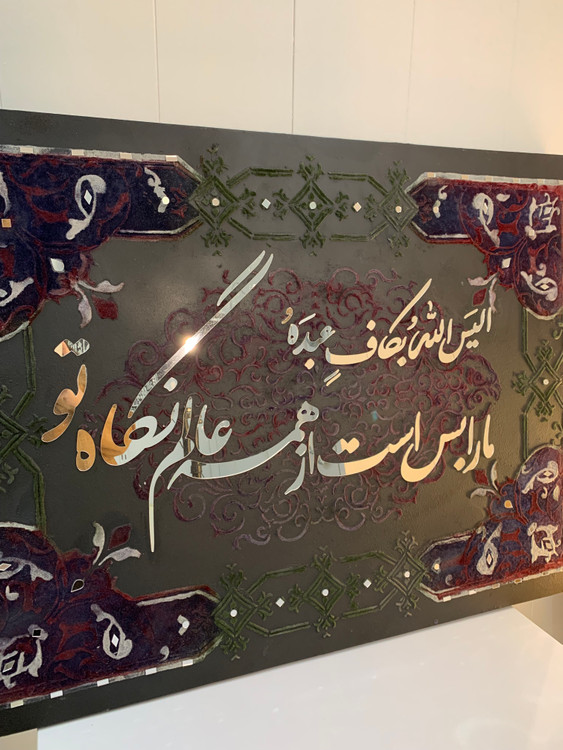 الیَسَ اللهُ بکافٍ عبدَهُ
ما را بس است از همه عالم نگاه تو